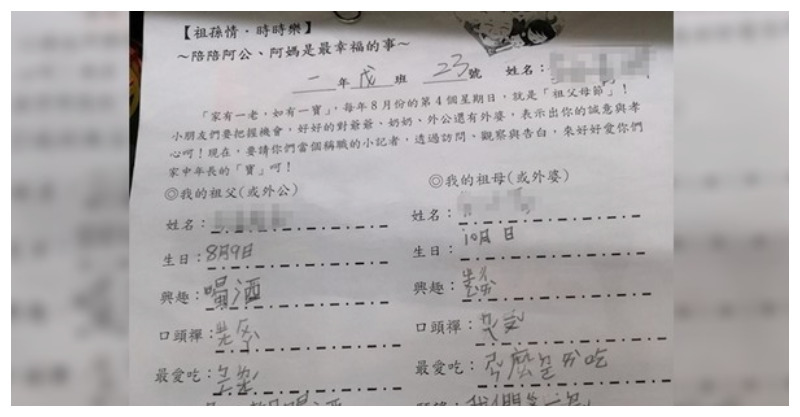 【祖孫情·時時樂】
～陪陪阿公、阿媽是最幸福的事～
一年戊班 23號 姓名：
「家有一老，如有一寶」，每年8月份的第4個星期日，就是「祖父母節」！
小朋友們要把握機會，好好的對爺爺、奶奶、外公還有外婆，表示出你的誠意與孝
心呵！現在，要請你們當個稱職的小記者，透過訪問、觀察與告白，來好好愛你們
家中年長的「寶」呵！
◎我的祖父(或外公)
姓名：
生日：8月9日
興趣：喝酒
口頭禪：
最愛吃：
◎我的祖母(或外婆)
姓名：
生日：10月 日
興趣：
口頭禪：
最愛吃：麼 吃